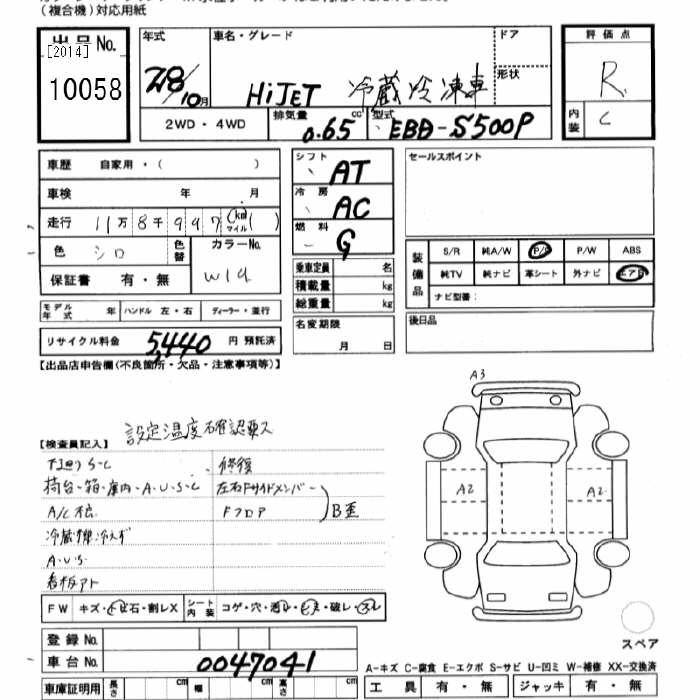 （複合機）対応用紙
出品No.
[2014]
10058
年式
28/10月
車名・グレード
HiJET 冷蔵冷凍車
ドア
形状
評価点
R
内装
C
2WD・4WD
排気量
0.65 cc
型式
EBD-S500P
車歴 自家用・（ ）
車検 年 月
走行 11万8千997 km マイル ( )
色 シロ
色替
カラーNo.
W19
保証書 有・無
モデル年式 年 ハンドル 左・右 ディーラー・並行
リサイクル料金 5,440 円 預託済
シフト AT
冷房 AC
燃料 G
乗車定員 名
積載量 kg
総重量 kg
名変期限
月 日
セールスポイント
装備品
S/R 純A/W P/S P/W ABS
純TV 純ナビ 革シート 外ナビ エアB
ナビ型番：
後日品
【出品店申告欄(不良箇所・欠品・注意事項等)】
【検査員記入】
設定温度確認取ス
下廻りS・C
荷台・箱・庫内・A・U・S・C
A/C不良
冷蔵機冷えず
A・U・S
看板アト
修復
左右Fサイドメンバー
Fフロア
B歪
A3
A2
A2
スペア
FW キズ・トビ石・割レX
シート内装 コゲ・穴・汚レ・キズ・破レ・スレ
登録No.
車台No. 0047041
車庫証明用 長さ cm 幅 cm 高さ cm
A-キズ C-腐食 E-エクボ S-サビ U-凹ミ W-補修 XX-交換済
工具 有・無 ジャッキ 有・無